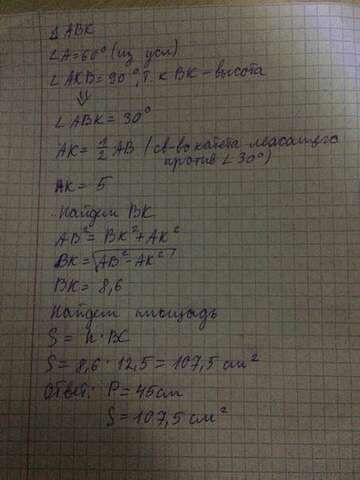 Δ ABK
∠A=60° (из усл)
∠AKB=90°, т.к BK - высота
⇓
∠ABK=30°
AK= 1/2 AB (св-во катета лежащего
против ∠30°)
AK = 5
Найдем BK
AB²= BK²+AK²
BK=√AB²-AK²
BK= 8,6
Найдем площадь
S = h·BC
S= 8,6·12,5=107,5 см²
Ответ: P=45см
S=107,5 см²